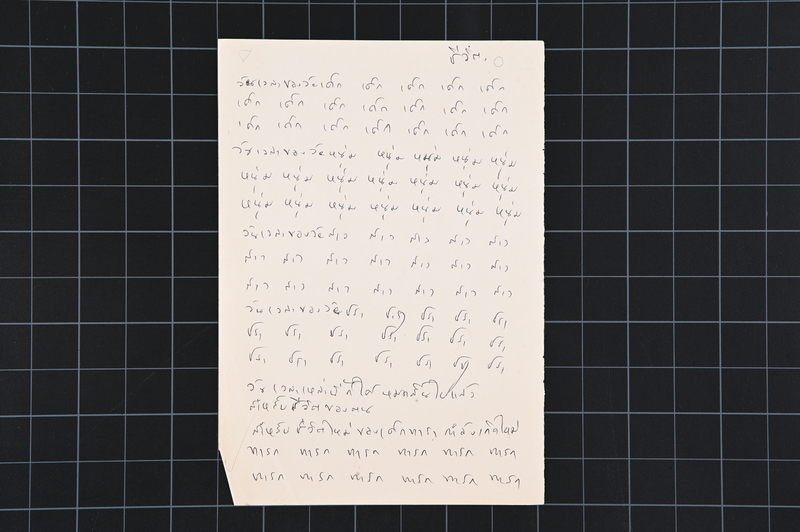 ชีวิต.
วันเวลาของวัยเด็ก เด็ก เด็ก เด็ก เด็ก
เด็ก เด็ก เด็ก เด็ก เด็ก เด็ก เด็ก
เด็ก เด็ก เด็ก เด็ก เด็ก เด็ก เด็ก
วันเวลาของวัยหนุ่ม หนุ่ม หนุ่ม หนุ่ม หนุ่ม
หนุ่ม หนุ่ม หนุ่ม หนุ่ม หนุ่ม หนุ่ม หนุ่ม
หนุ่ม หนุ่ม หนุ่ม หนุ่ม หนุ่ม หนุ่ม หนุ่ม
วันเวลาของวัยสาว สาว สาว สาว สาว
สาว สาว สาว สาว สาว สาว สาว
สาว สาว สาว สาว สาว สาว สาว
วันเวลาของวัยชรา ชรา ชรา ชรา ชรา
ชรา ชรา ชรา ชรา ชรา ชรา ชรา
ชรา ชรา ชรา ชรา ชรา ชรา ชรา
วันเวลาเหล่านี้ก็ได้หมดสิ้นไปแล้ว
สำหรับชีวิตของคน
สำหรับชีวิตใหม่ของเด็กทารก กำลังเกิดใหม่
ทารก ทารก ทารก ทารก ทารก ทารก
ทารก ทารก ทารก ทารก ทารก ทารก